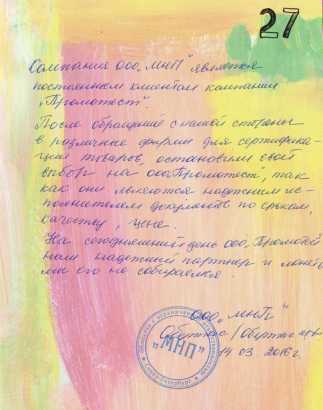 27
Компания ООО „МНП" является
постоянным клиентом компании
„Промотест".
После обращений с нашей стороны
в различные фирмы для сертифика-
ции товаров, остановили свой
выбор на ООО„Промотест", так
как они являются надежным ис-
полнителем документов по срокам,
качеству, цене.
На сегодняшний день ООО„Промотест"
наш надежный партнер и менять
мы его не собираемся.
ООО „МНП"
"МНП"
14 03